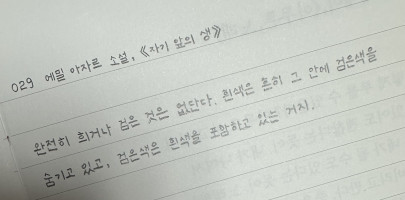 029 에밀 아자르 소설, 《자기 앞의 생》
완전히 희거나 검은 것은 없단다. 흰색은 흔히 그 안에 검은색을
숨기고 있고, 검은색은 흰색을 포함하고 있는 거지.